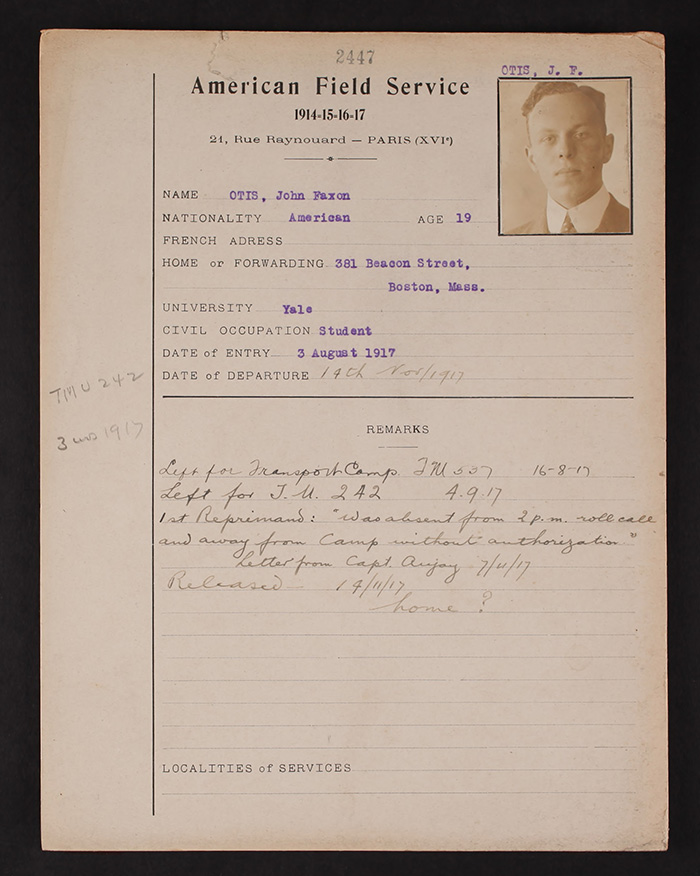 2447
OTIS, J. F.
American Field Service
1914-15-16-17
21, Rue Raynouard — PARIS (XVIe)
NAME OTIS, John Faxon
NATIONALITY American AGE 19
FRENCH ADRESS
HOME or FORWARDING 381 Beacon Street,
Boston, Mass.
UNIVERSITY Yale
CIVIL OCCUPATION Student
DATE of ENTRY 3 August 1917
DATE of DEPARTURE 14th Nov/1917
TMU 242
3 1917
REMARKS
Left for Transport Camp. TM 537 16-8-17
Left for T.U. 242 4.9.17
1st Reprimand: "Was absent from 2 p.m. roll call
and away from Camp without authorization"
Letter from Capt. 7/11/17
Released — 14/11/17
home ?
LOCALITIES of SERVICES